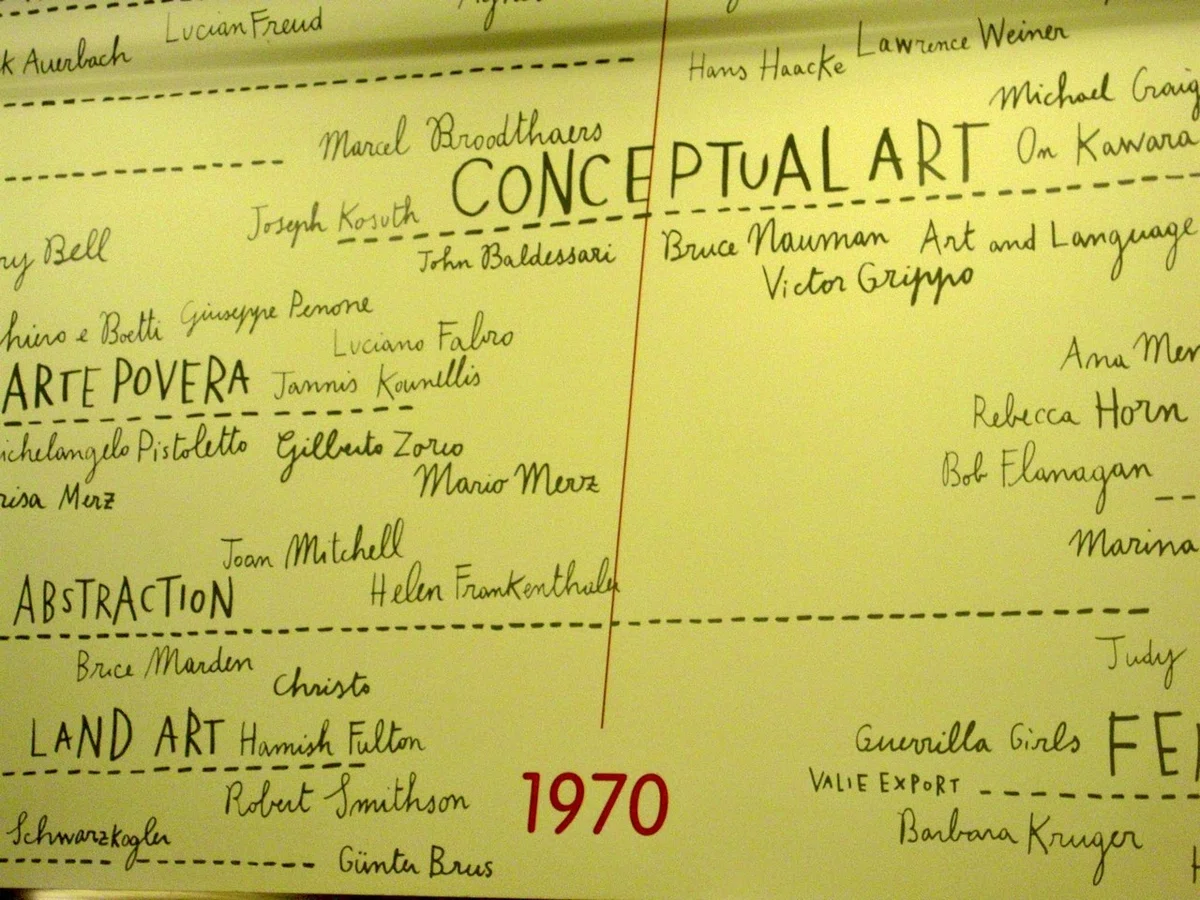 Lucian Freud
k Auerbach
Lawrence Weiner
Hans Haacke
Michael Craig
Marcel Broodthaers
CONCEPTUAL ART
On Kawara
Joseph Kosuth
ry Bell
John Baldessari
Bruce Nauman
Art and Language
Victor Grippo
hiero e Boetti
Giuseppe Penone
Luciano Fabro
Ana Men
ARTE POVERA
Jannis Kounellis
Rebecca Horn
ichelangelo Pistoletto
Gilberto Zorio
Bob Flanagan
risa Merz
Mario Merz
Joan Mitchell
Marina
ABSTRACTION
Helen Frankenthaler
Brice Marden
Judy
Christo
LAND ART
Hamish Fulton
Guerrilla Girls
FE
VALIE EXPORT
Robert Smithson
1970
Schwarzkogler
Barbara Kruger
Günter Brus